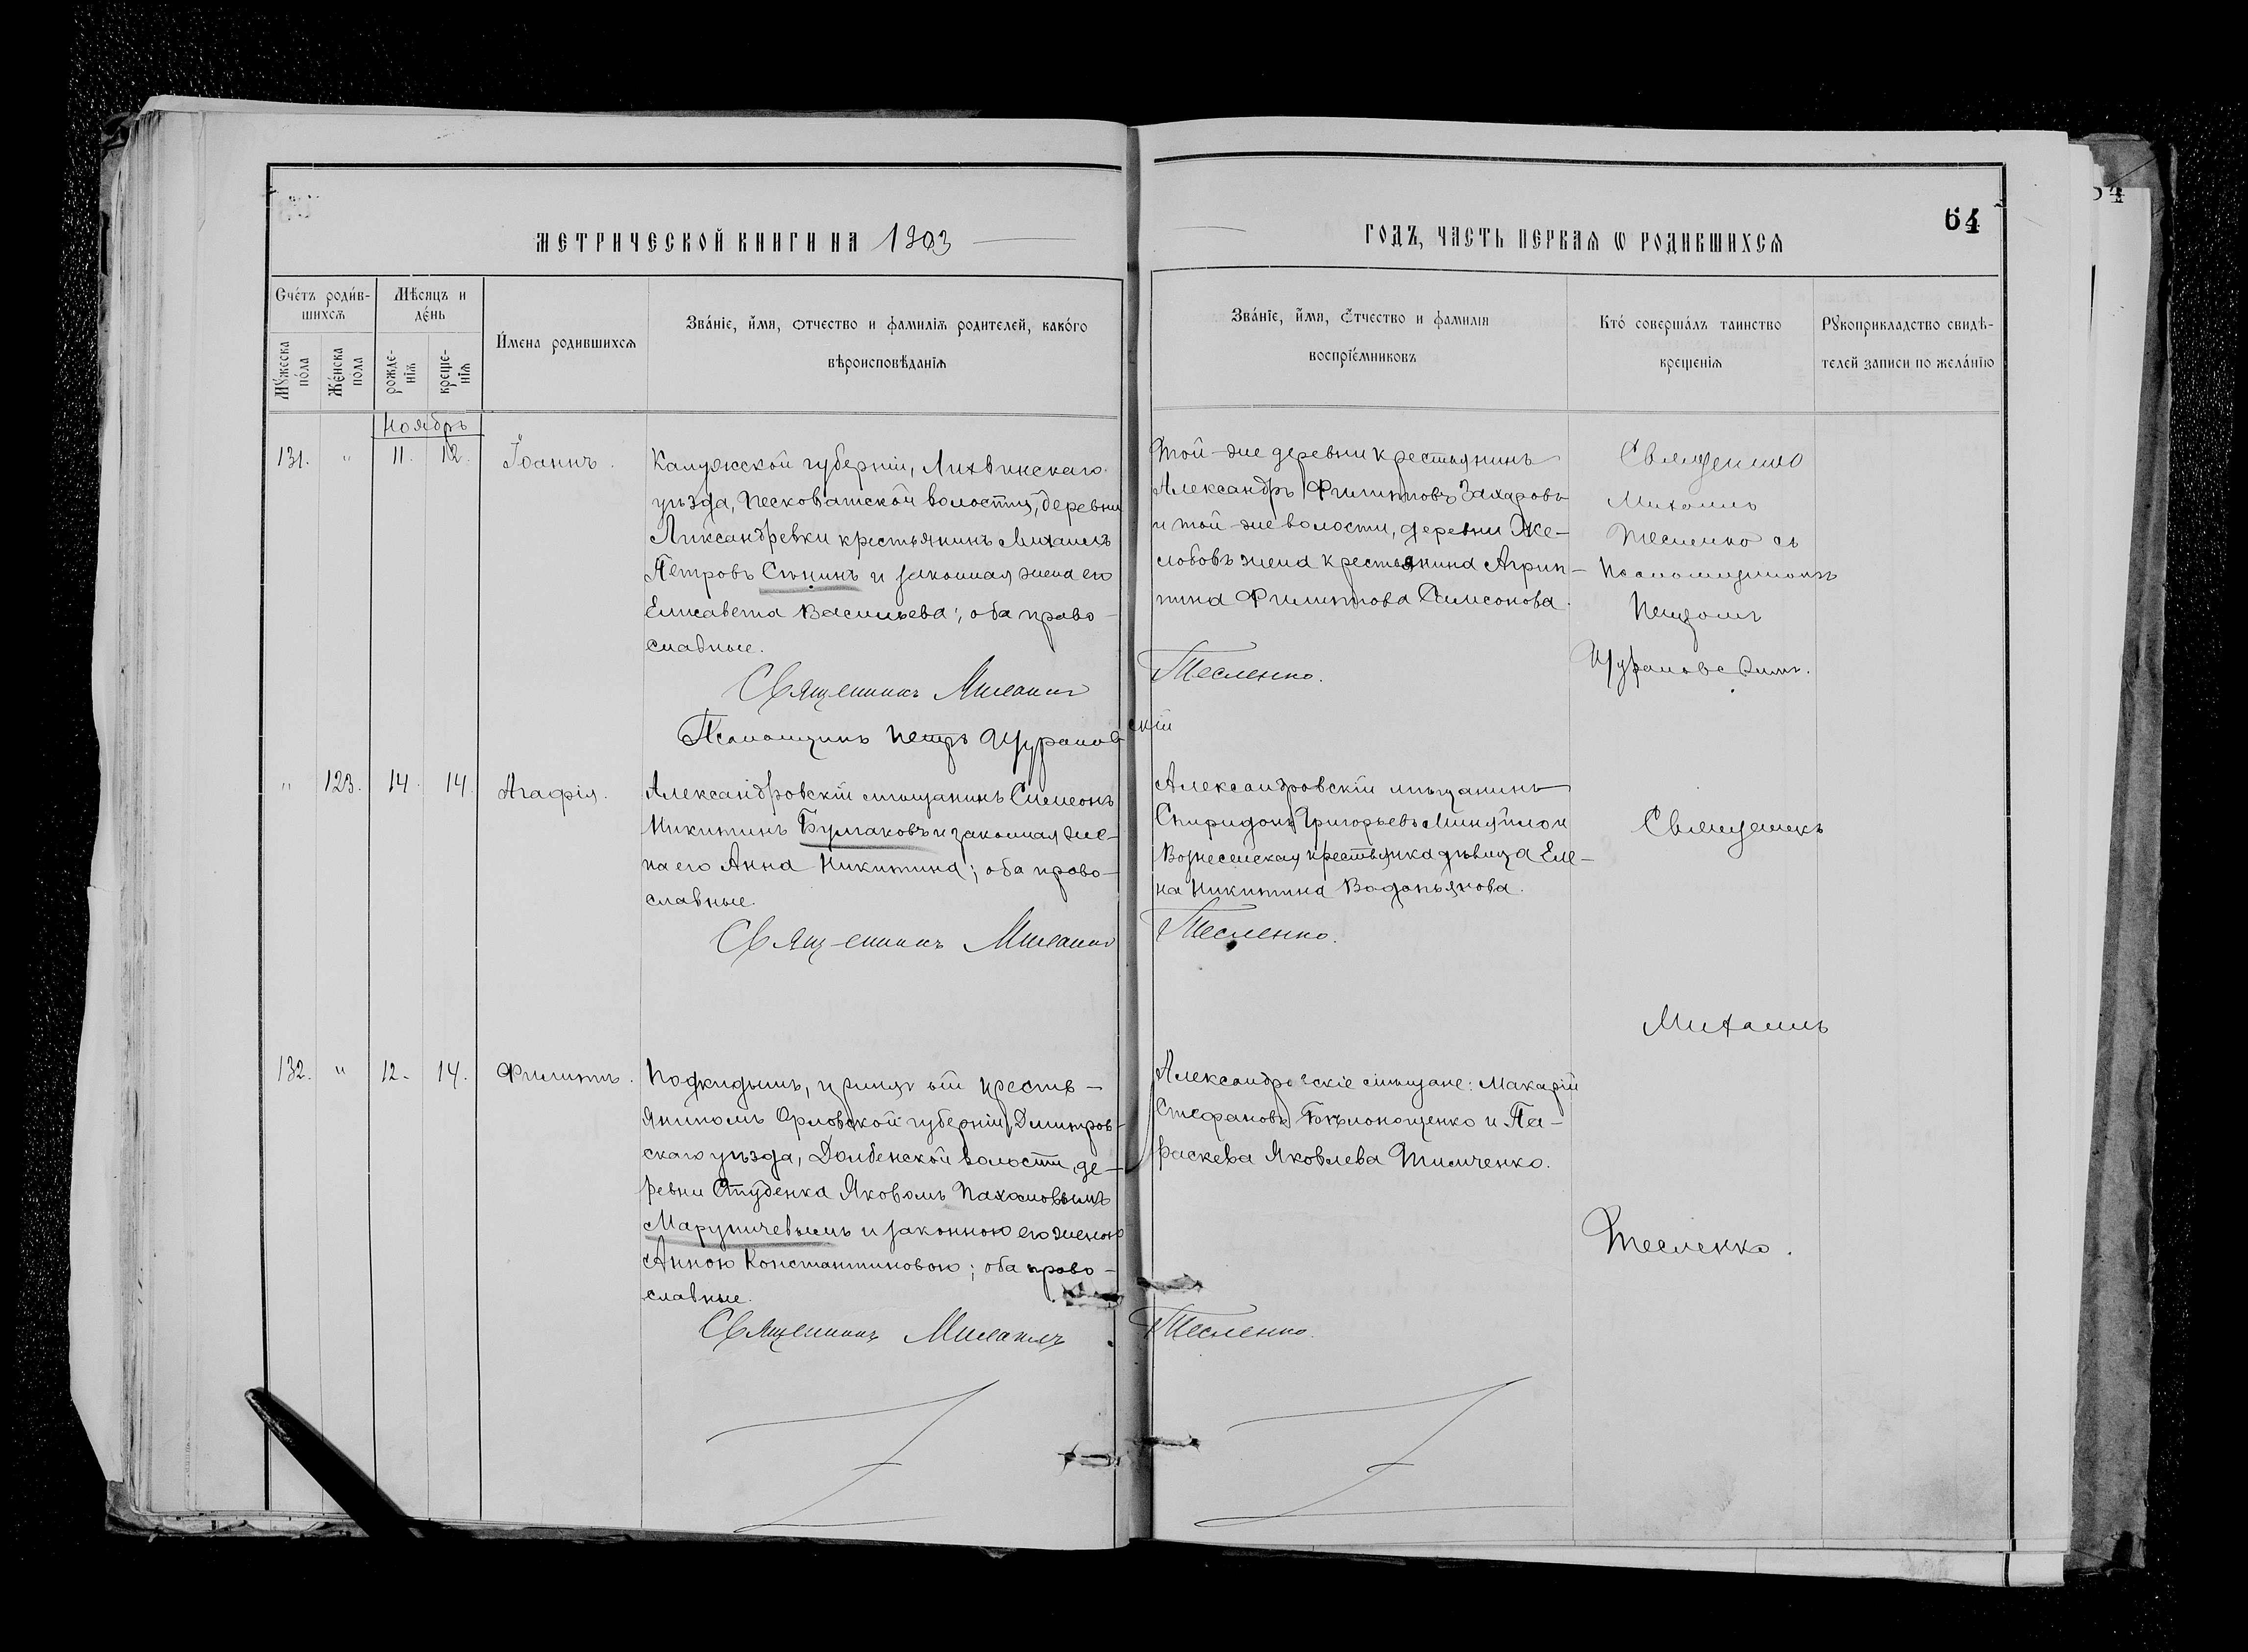 64
МЕТРИЧЕСКОЙ КНИГИ НА 1903
ГОДЪ, ЧАСТЬ ПЕРВАѦ Ѡ РОДИВШИХСѦ
Счéтъ роди́в-
шихсѧ
Мѣ́сяцъ и
де́нь
Мꙋ́жеска
по́ла
Же́нска
пола
рожде-
нїѧ
креще-
нїѧ
И́мена родившихсѧ
Зва́нїе, и́мя, ѻтчество и фамилїѧ родителей, како́го
вѣроисповѣ́данїѧ
Зва́нїе, и́мя, ѻ́тчество и фамилїя
воспрїе́мниковъ
Кто́ соверша́лъ таинство
крещенїѧ
Рꙋкоприкладство свидѣ-
телей записи по жела́нїю
Ноябрь
131. " 11. 12. Іоаннъ.
Калужской губерніи, Лихвинскаго
уѣзда, Песковатской волости, деревни
Александревки крестьянинъ Михаилъ
Петровъ Сѣнинъ и законная жена его
Елисавета Васильева; оба право-
славные.
Священникъ Михаилъ Тесленко.
Псаломщикъ Петръ Щурановскій
Той-же деревни крестьянинъ
Александръ Филипповъ Захаровъ
и той-же волости, деревни Же-
лобовъ жена крестьянина Агрип-
пина Филиппова Самсонова.
Священникъ
Михаилъ
Тесленко съ
Псаломщикомъ
Петромъ
Щурановским.
" 123. 14. 14. Агафія.
Александровскій мѣщанинъ Симеонъ
Никитинъ Булгаковъ и законная же-
на его Анна Никитина; оба право-
славные.
Священникъ Михаилъ Тесленко.
Александровскій мѣщанинъ
Спиридонъ Григорьевъ Миняйло и
Вознесенская крестьянка дѣвица Еле-
на Никитина Водопьянова.
Священникъ
Михаилъ
Тесленко.
132. " 12. 14. Филиппъ.
Подкидышъ, принятый кресть-
яниномъ Орловской губерніи, Дмитров-
скаго уѣзда, Долбенской волости, де-
ревни Студенка Яковомъ Пахомовымъ
Марушчевымъ и законною его женою
Анною Константиновою; оба право-
славные.
Священникъ Михаилъ Тесленко.
Александровскіе мѣщане: Макарій
Стефановъ Бѣлоножченко и Па-
раскева Яковлева Тимченко.